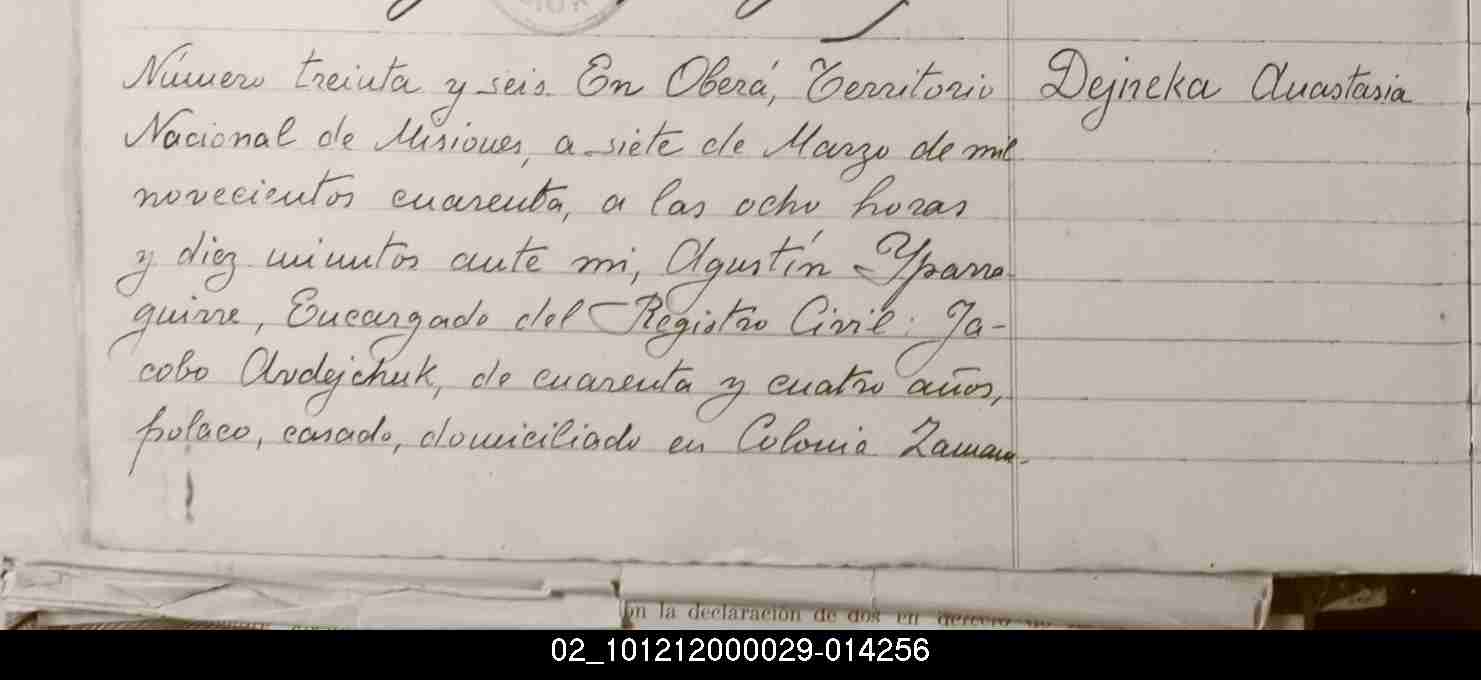 Número treinta y seis. En Oberá, Territorio
Dejneka Anastasia
Nacional de Misiones, a siete de Marzo de mil
novecientos cuarenta, a las ocho horas
y diez minutos ante mi, Agustín Yparra-
guirre, Encargado del Registro Civil: Ja-
cobo Avdejchuk, de cuarenta y cuatro años,
polaco, casado, domiciliado en Colonia
on la declaración de dos en
02_101212000029-014256